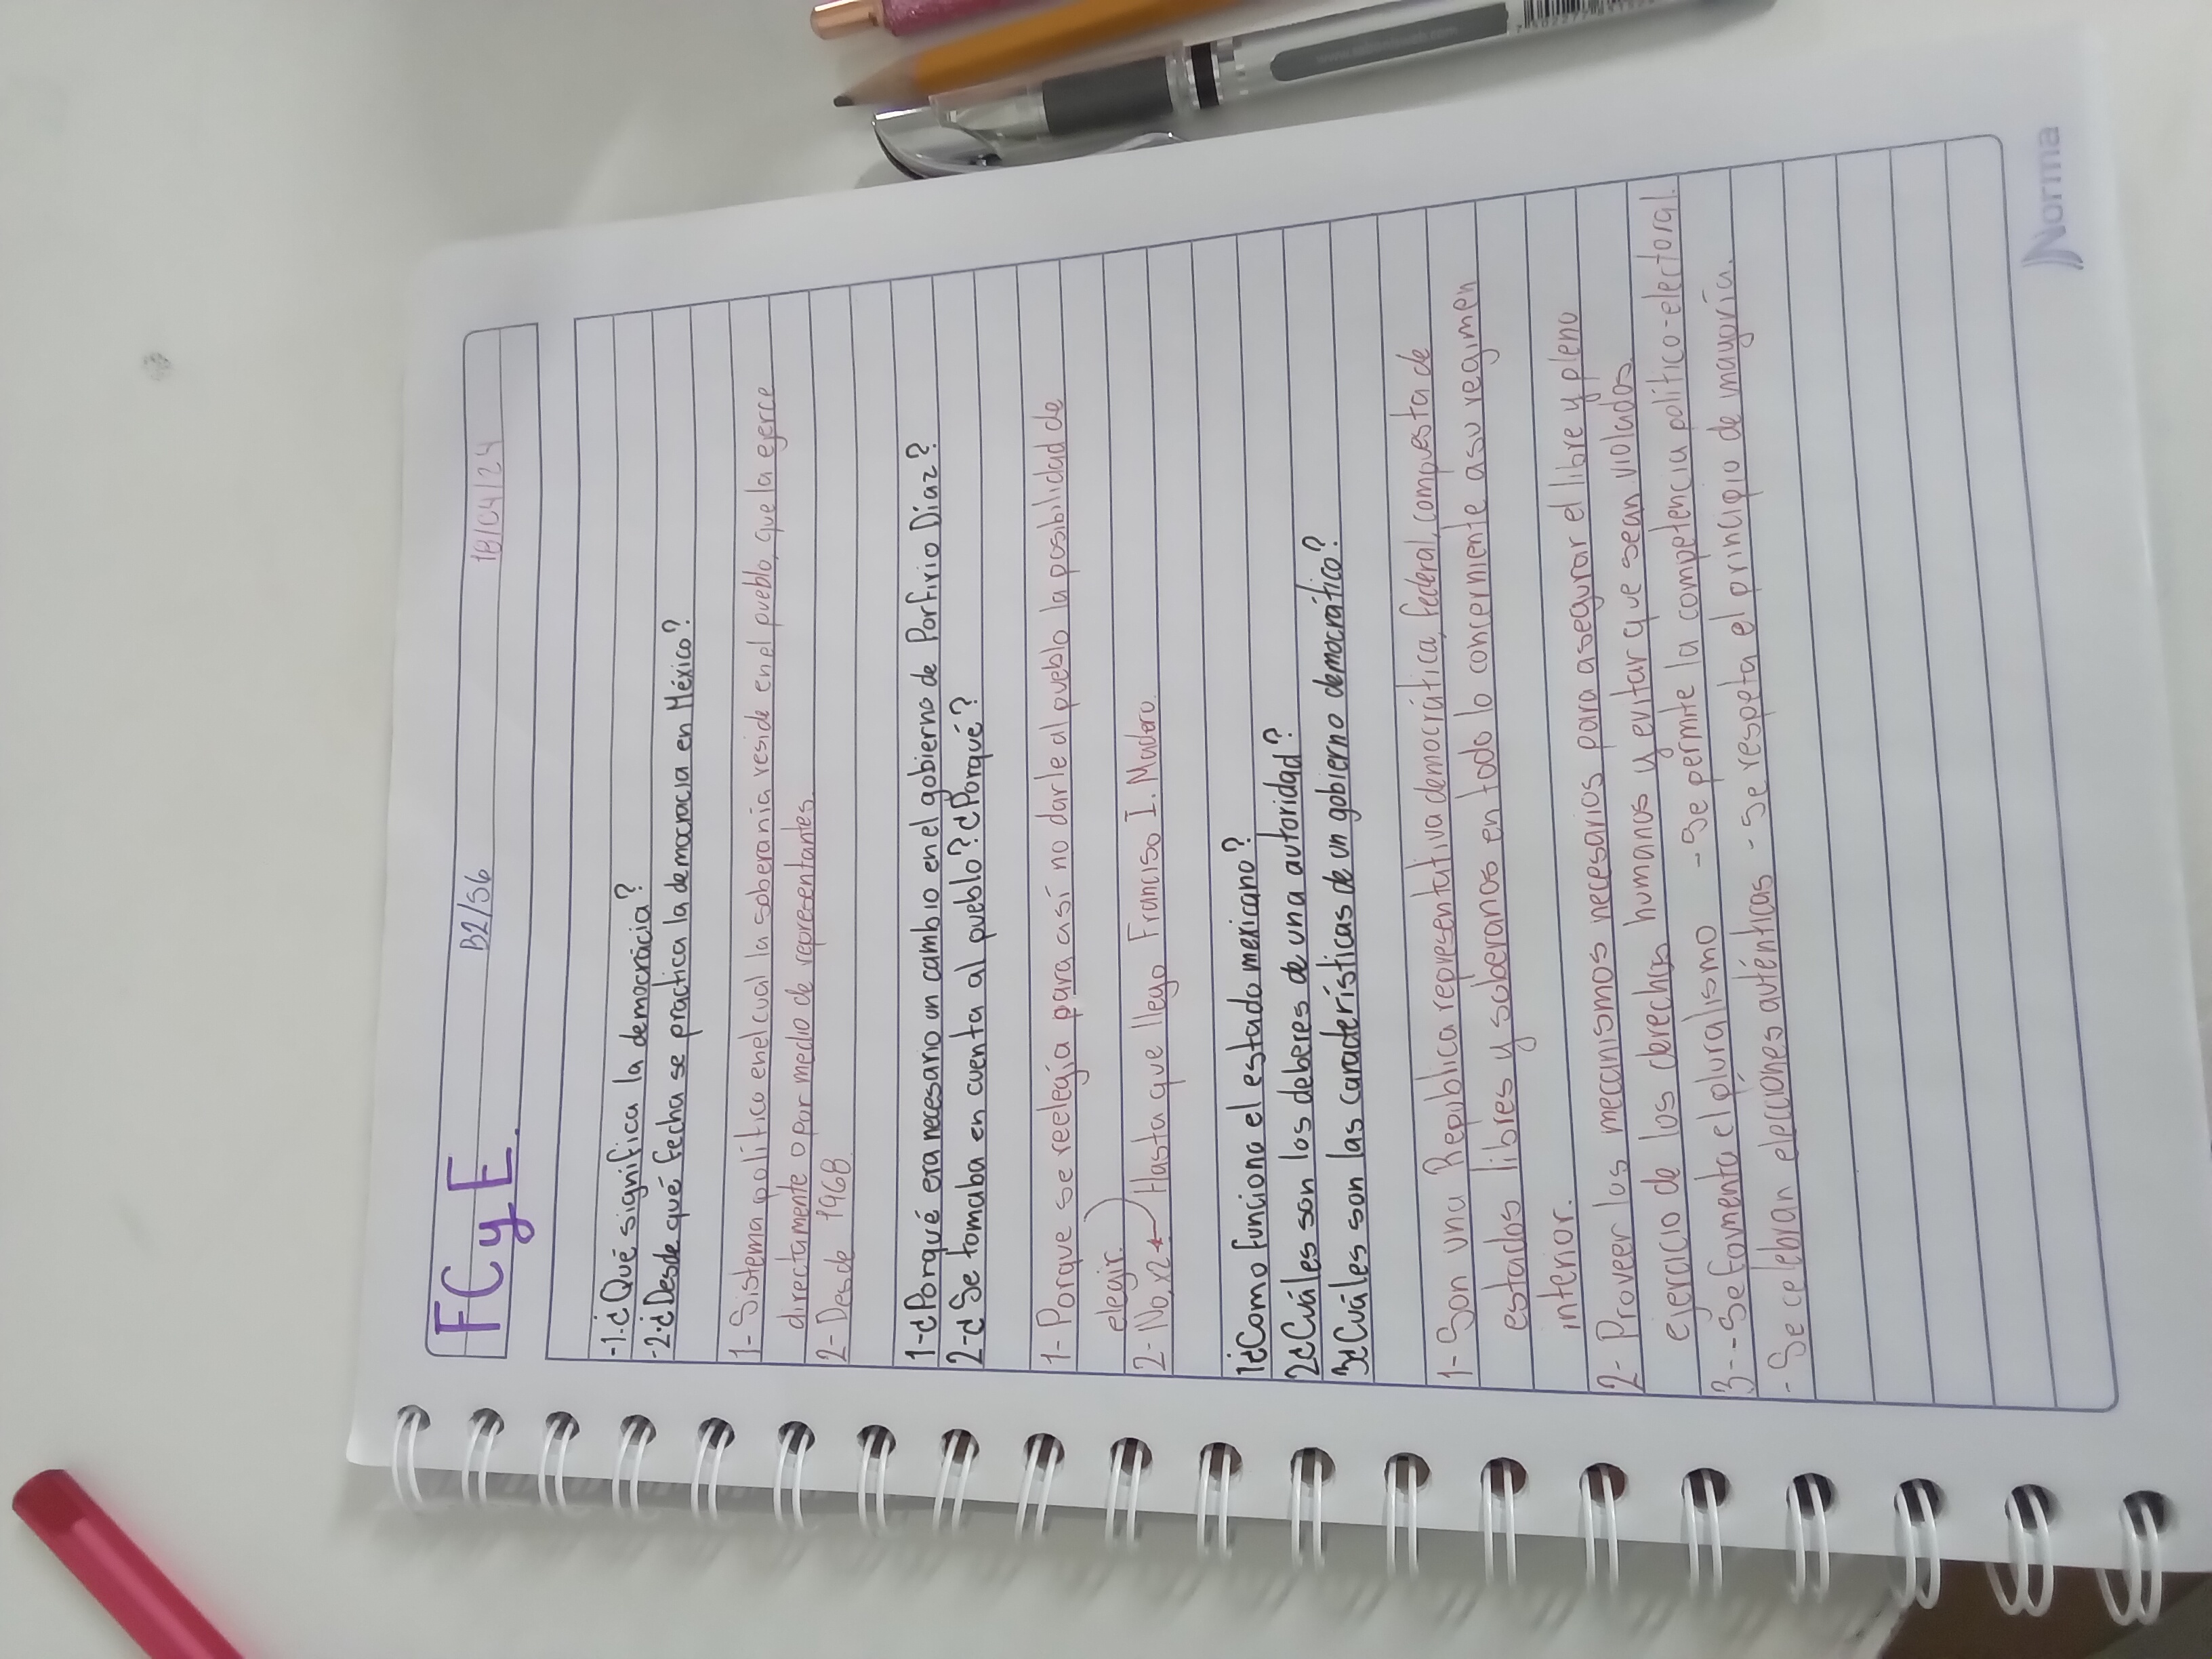 FCyE.
B2/S6
18/04/24
-1.¿Qué significa la democrácia?
-2.¿Desde qué fecha se practica la democracia en México?
1- Sistema político en el cual la soberania reside en el pueblo, que la ejerce
directamente o por medio de representantes.
2- Desde 1968.
1-¿Porqué era necesario un cambio en el gobierno de Porfirio Díaz?
2-¿Se tomaba en cuenta al pueblo?¿Porqué?
1- Porque se reelegía para así no darle al pueblo la posibilidad de
elegir.
2- No, x2 Hasta que llego Franciso I. Madero.
1¿Como funciona el estado mexicano?
2¿Cuáles son los deberes de una autoridad?
3¿Cuáles son las caraderísticas de un gobierno democrático?
1- Son una República representativa democrática, federal, compuesta de
estados libres y soberanos en todo lo concerniente a su regimen
interior.
2- Proveer los mecanismos necesarios para asegurar el libre y pleno
ejercicio de los derechos humanos y evitar que sean violados.
3--Se fomenta el pluralismo -Se permite la competencia político-electoral.
-Se celebran elecciónes auténticas -Se respeta el principio de mayoría.
Norma